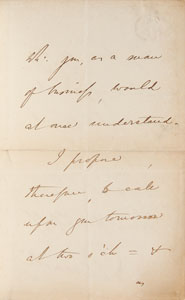 Wh: you, as a man
of business, would
at once understand.
I propose,
therefore, to call
upon you tomorrow
at two o'ck = &